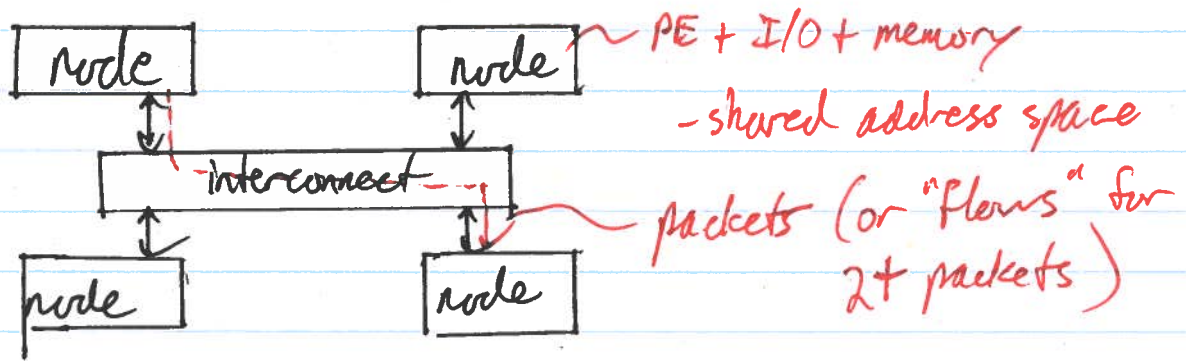 node
node
PE + I/O + memory
- shared address space
interconnect
packets (or "flows" for
2+ packets)
node
node